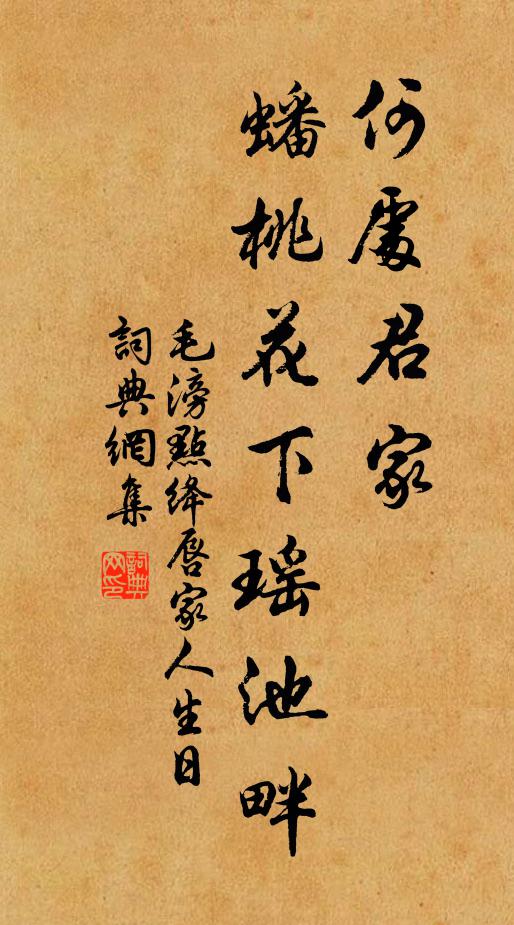 何處君家
蟠桃花下瑶池畔
毛滂點绛唇家人生日
詞典網集
詞典
网印